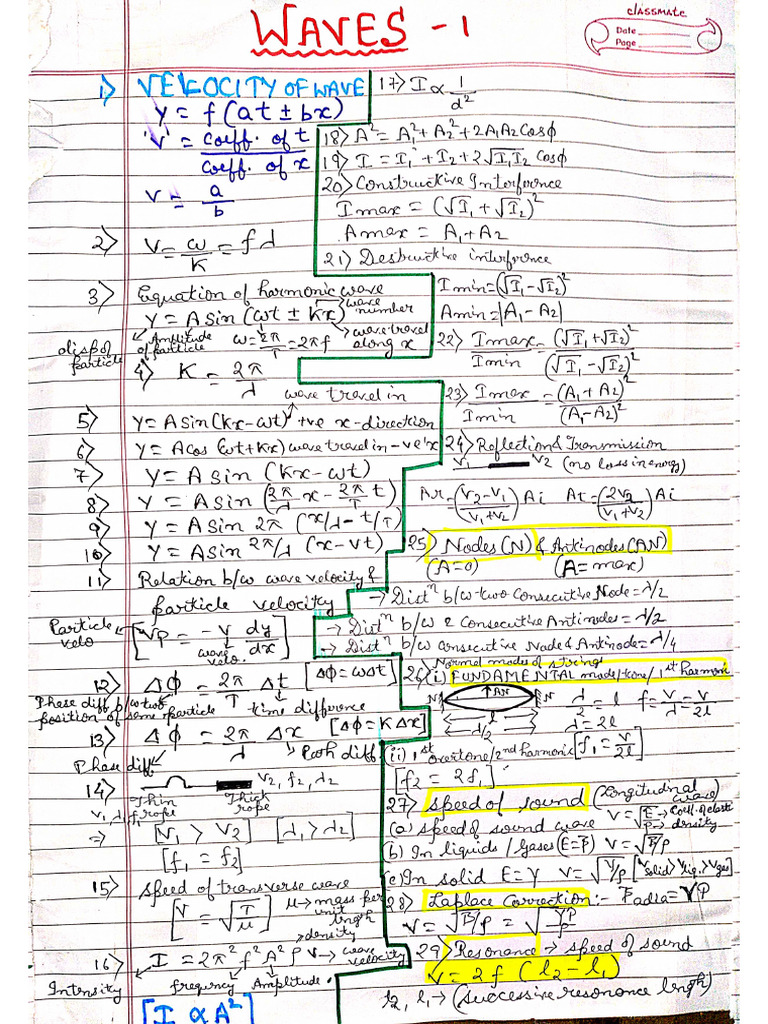 WAVES - 1
classmate
Date
Page
1) VELOCITY OF WAVE
y = f(at ± bx)
'v' = coeff. of t
coeff. of x
v = a/b
2) v = ω/K = fλ
3) Equation of harmonic wave
y = A sin(ωt ± Kx) → wave number
disp of particle
Amplitude of particle
ω = 2π/T = 2πf
wave travel along x
4) K = 2π/λ
wave travel in
5) y = A sin(Kx - ωt) +ve x-direction
6) y = A cos(ωt + Kx) wave travel in -ve x
7) y = A sin (Kx - ωt)
8) y = A sin (2π/λ x - 2π/T t)
9) y = A sin 2π (x/λ - t/T)
10) y = A sin 2π/λ (x - vt)
11) Relation b/w wave velocity &
particle velocity
Particle velo
[Vp = -V dy/dx]
wave velo.
12) Δϕ = 2π/T Δt [Δϕ = ωΔt]
Phase diff b/w two position of same particle
time difference
13) Δϕ = 2π/λ Δx [Δϕ = KΔx]
Phase diff
Path diff.
14) V2, f2, λ2
Thin rope
Thick rope
V1, λ1, f
⇒ [V1 > V2] [λ1 > λ2]
[f1 = f2]
15) Speed of transverse wave
[V = √T/μ] μ → mass per unit lngh
16) I = 2π² f² A² ρ V → wave velocity
density
Intensity
frequency Amplitude.
[I ∝ A²]
17) I ∝ 1/d²
18) A² = A1² + A2² + 2A1A2 cosϕ
19) I = I1 + I2 + 2√I1I2 cosϕ
20) Constructive Interfernce
Imax = (√I1 + √I2)²
Amax = A1 + A2
21) Destructive interfernce
Imin = (√I1 - √I2)²
Amin = |A1 - A2|
22) Imax/Imin = (√I1 + √I2)²/(√I1 - √I2)²
23) Imax/Imin = (A1 + A2)²/(A1 - A2)²
24) Reflection & Transmission
V1 V2 (no loss in energy)
Ar = (V2 - V1/V1 + V2) Ai At = (2V2/V1 + V2) Ai
25) Nodes (N) & Antinodes (AN)
(A = 0) (A = max)
→ Distⁿ b/w two Consecutive Node = λ/2
→ Distⁿ b/w 2 Consecutive Antinodes = λ/2
→ Distⁿ b/w consecutive Node & Antinode = λ/4
Normal modes of strings
26) (i) FUNDAMENTAL mode/tone/1st harmonic
N AN N
l
λ/2
λ/2 = l f = v/λ = v/2l
λ = 2l
[f1 = v/2l]
(ii) 1st overtone/2nd harmonic
[f2 = 2f1]
27) Speed of sound (Longitudinal wave)
(a) speed of sound wave V = √E/ρ → density
(b) In liquids/Gases (E = B) V = √B/ρ
(c) In solid E = Y V = √Y/ρ [Vsolid > Vliq. > Vgas]
28) Laplace Correction :- Badia = γP
V = √B/ρ = √γP/ρ
29) Resonance → speed of sound
V = 2f (l2 - l1)
l2, l1 → (successive resonance lngh)